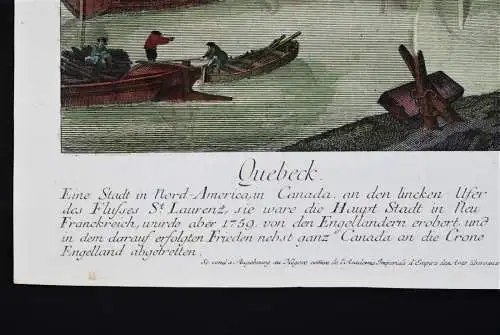 Quebeck.
Eine Stadt in Nord-America, in Canada, an den lincken Ufer
des Flusses St. Laurenz, sie ware die Haupt Stadt in Neu
Franckreich, wurde aber 1759. von den Engelländern erobert, und
in dem darauf erfolgten Frieden nebst ganz Canada an die Crone
Engelland abgetreten.
Se vend a Augsbourg au Negoce comun de l'Academie Imperiale d'Empire des Arts liberaux